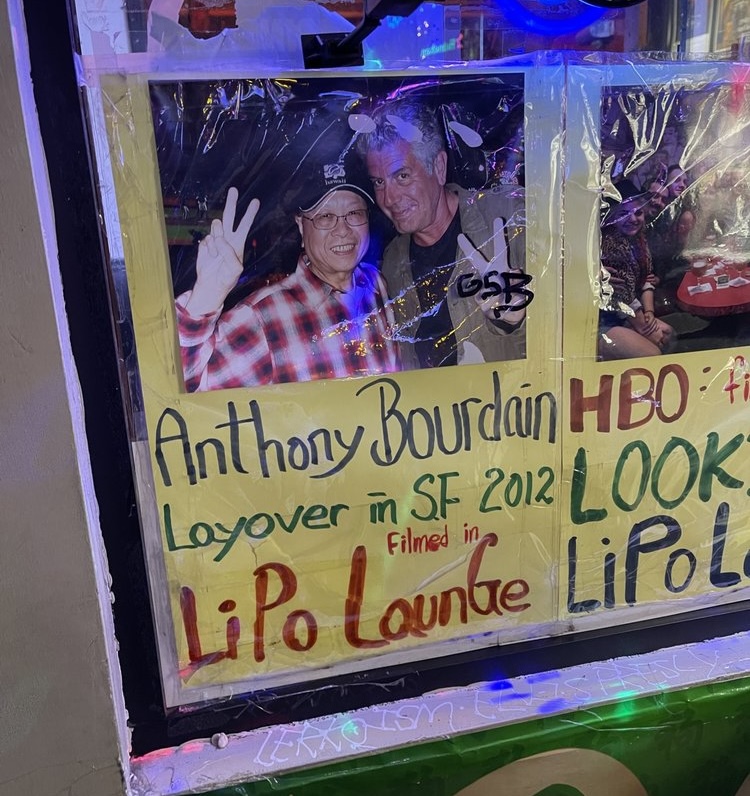 hawaii
GSB
Anthony Bourdain
Layover in S.F 2012
Filmed in
LiPo LounGe
HBO: fi
LOOK
LiPo L